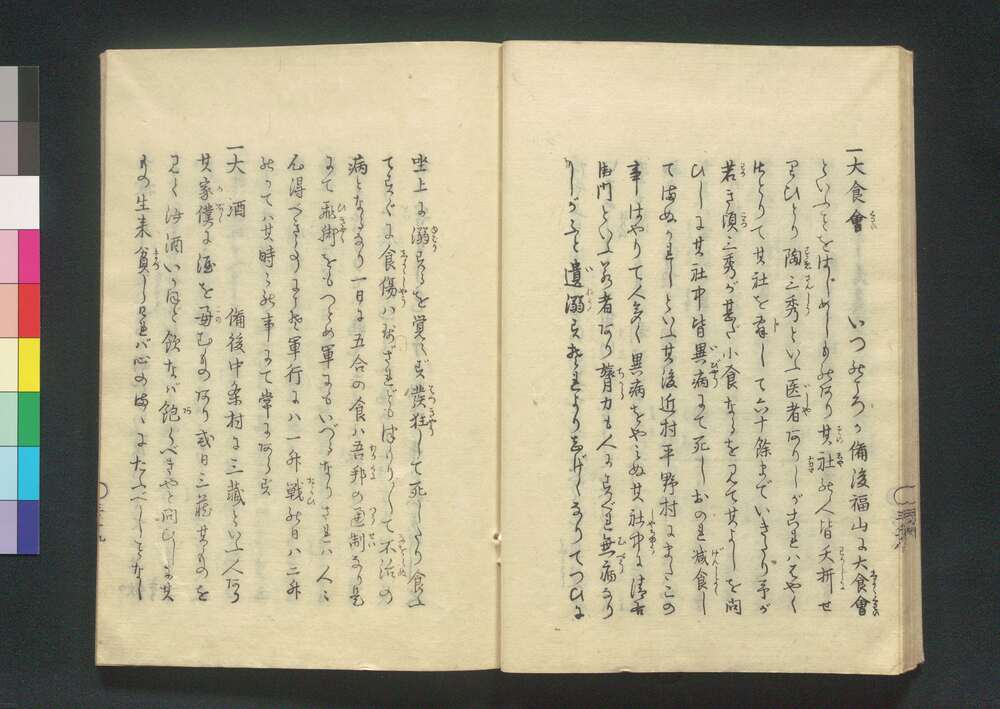 一大食會　いつのころか備後福山に大食會
といふことをはじめしものあり其社の人皆夭折せ
りひとり陶三秀といふ医者ありしがこれははやく
さとりて其社を辞して六十餘までいきたり予が
若き頃三秀が甚だ小食なるを見て其よしを問
ひしに其社中皆異病にて死しおのれ減食し
て免かれしといふ其後近村平野村にまたこの
事はやりて人多く異病をやみぬ其社中に清右
衛門といふ若者あり膂力も人にすぐれ無病なり
しがふと遺溺しそれよりしげくなりてつひに
坐上に溺するを覚えず發狂して死したり食ふ
てすぐに食傷はせざれどもほりほりして不治の
病となるなり一日に五合の食は吾邦の田制なり是
にて飛脚をもつとめ軍にもいづるなりされは人々
心得べきことなりそれ軍行には一升戦の日は二升
のかては其時の事にて常にあらず
一大　酒　備後中条村に三藏といふ人あり
其家僕に酒を好むものあり或日三藏其ものを
よく汝酒いかほど飲なば飽くべきやと問ひしに其
もの生来貧しければ心のままにたべしことなし